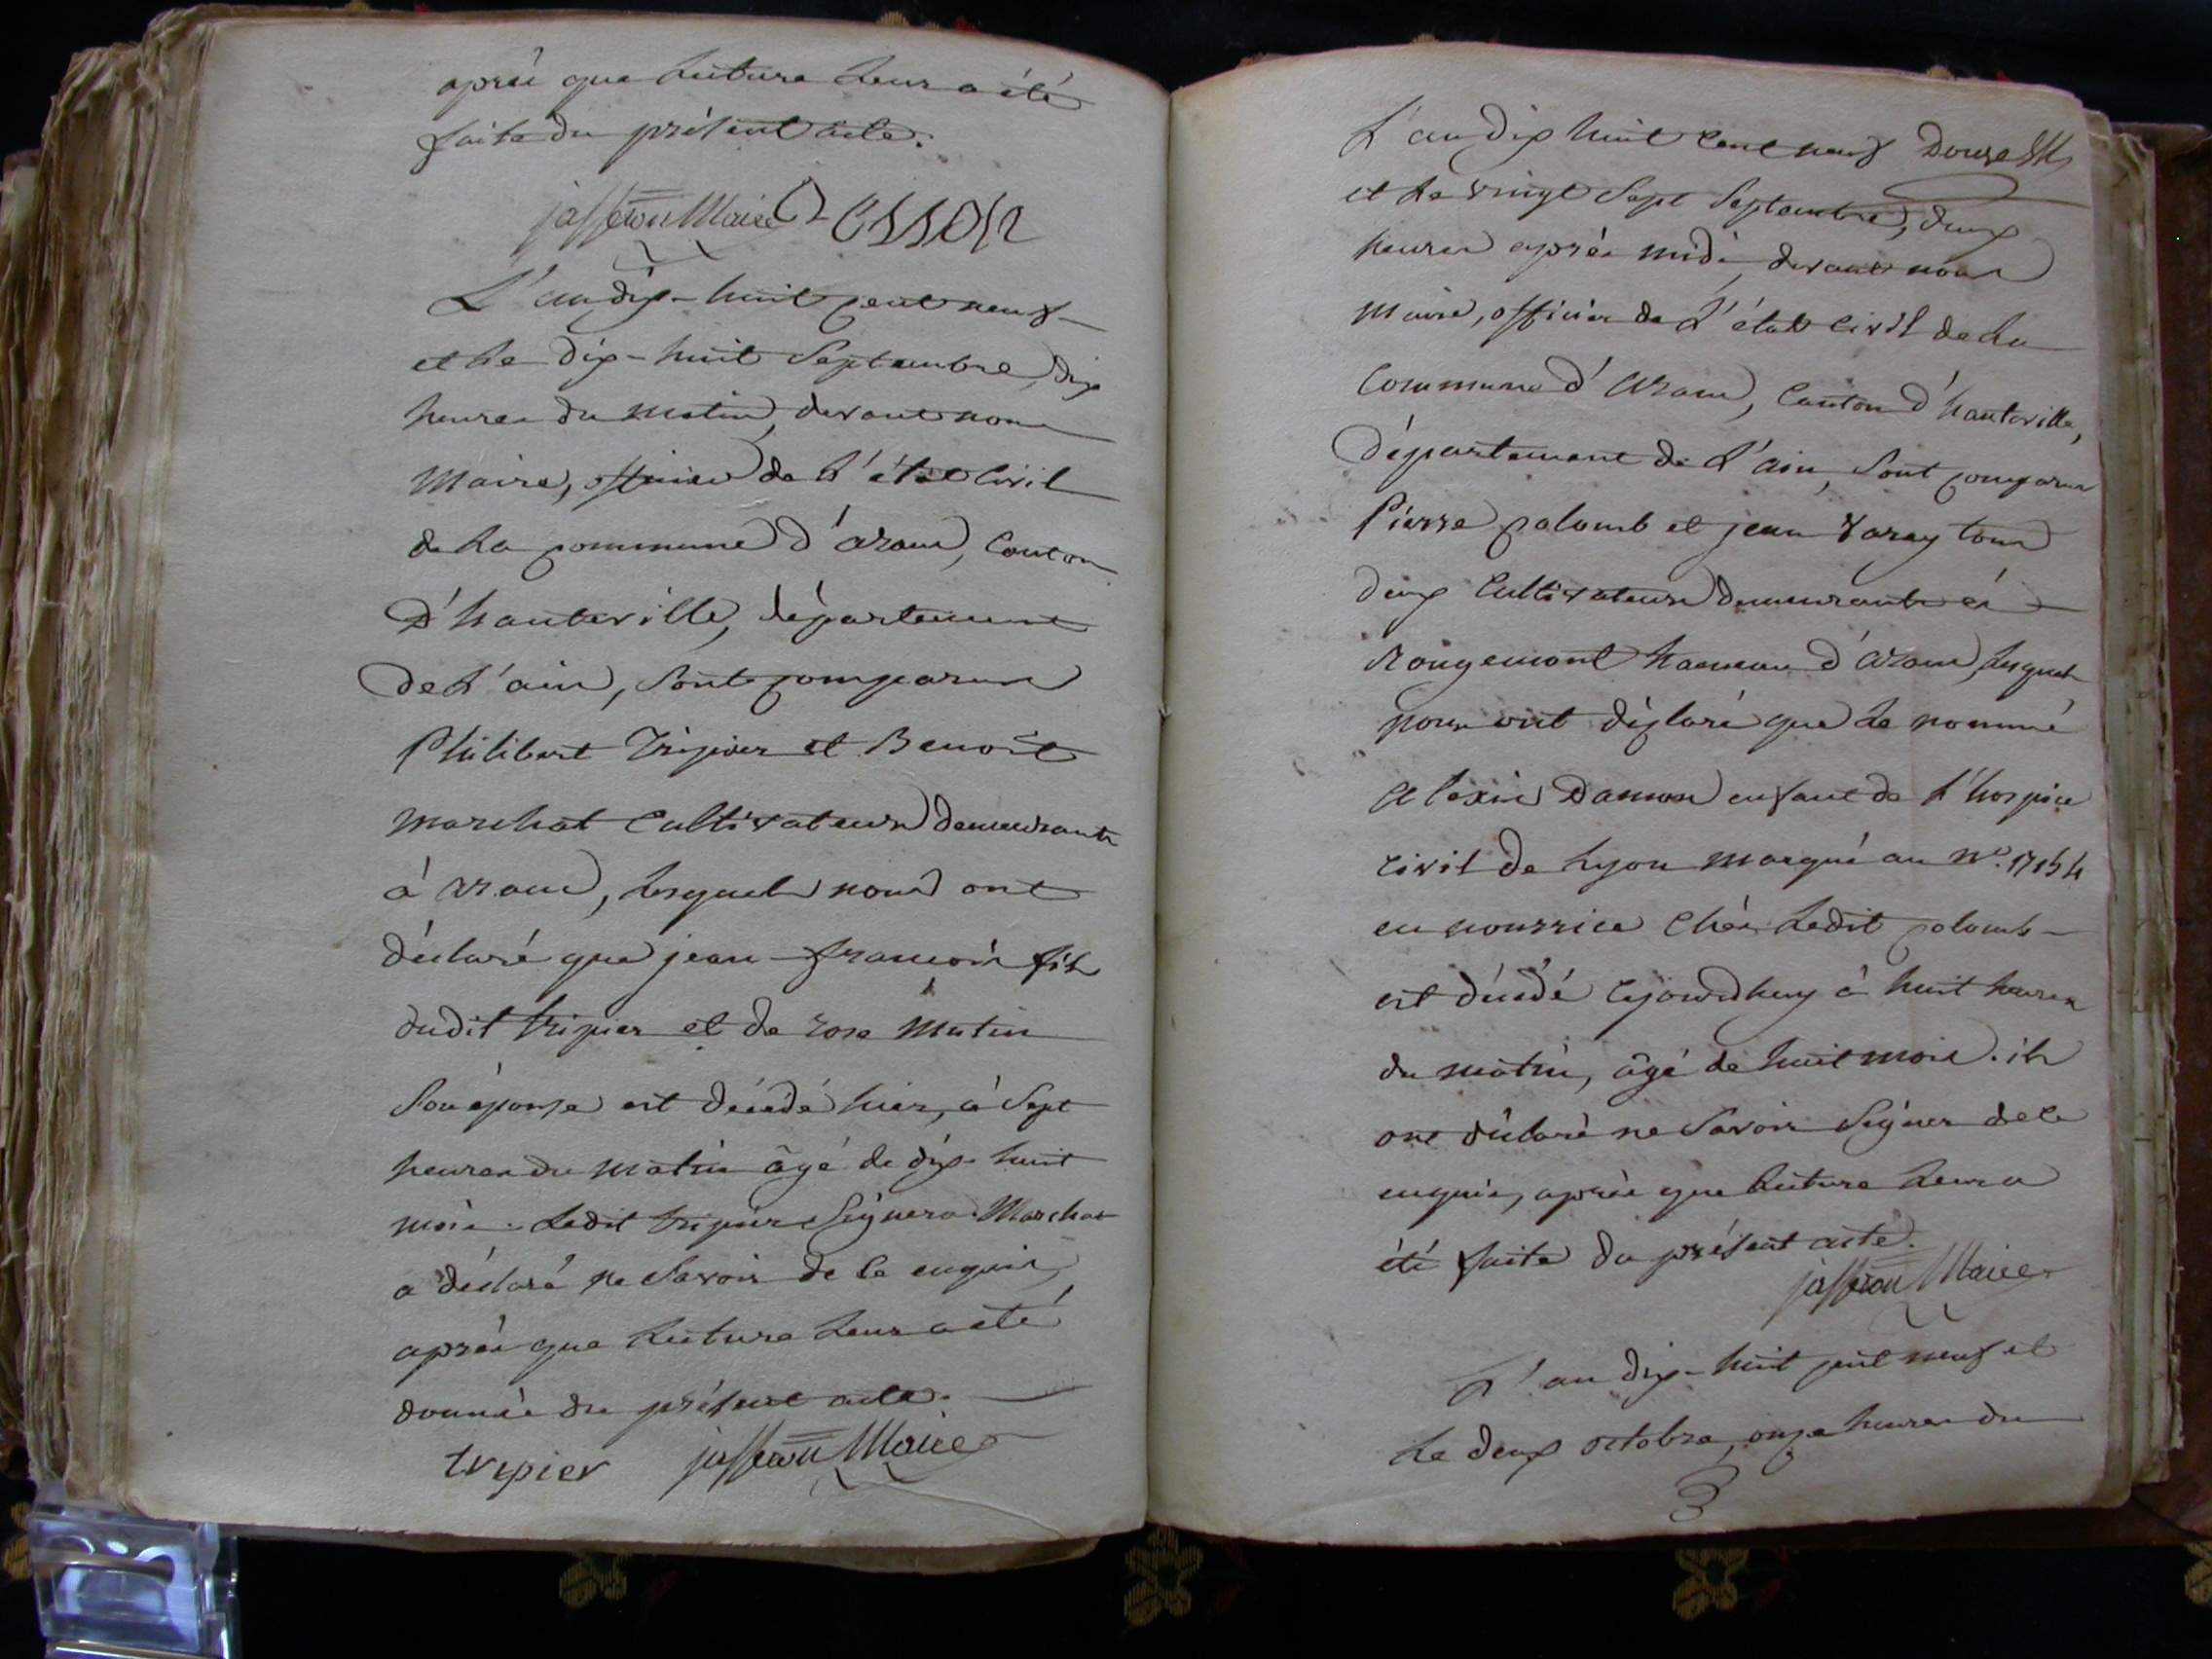 après que lecture leur a été
faite du présent acte.
jasseron Maire Besson
L'an dix-huit cent neuf
et le dix-huit Septembre, dix
heures du matin, devant nous
Maire, officier de l'état civil
de la commune d'aranc, Canton
d'hauteville, département
de l'ain, sont comparus
Philibert Tripier et Benoit
marchat cultivateurs demeurants
à aranc, lesquels nous ont
déclaré que jean-françois fils
dudit tripier et de rose mutin
Son épouse est décédé hier, à Sept
heures du matin âgé de dix-huit
mois. Ledit tripier Signera. Marchat
a déclaré ne savoir de ce enquis,
après que lecture leur a été
donnée du présent acte.
tripier jasseron Maire
L'an dix huit cent neuf Douze
et le vingt Sept Septembre, deux
heures après midi, devant nous
Maire, officier de l'état civil de la
Commune d'aranc, Canton d'hauteville,
Département de l'ain, sont comparus
Pierre palomb et jean Varey tous
deux cultivateurs demeurants à
Rougemont hameau d'aranc, lesquels
nous ont déclaré que le nommé
Alexis Damon enfant de l'hospice
civil de Lyon marqué au n°. 17154
en nourrice chés ledit palomb
est décédé cejourdhuy à huit heures
du matin, âgé de huit mois. ils
ont déclaré ne savoir Signer de ce
enquis, après que lecture leur a
été faite du présent acte.
jasseron Maire
L'an dix-huit cent neuf et
le deux octobre, onze heures du